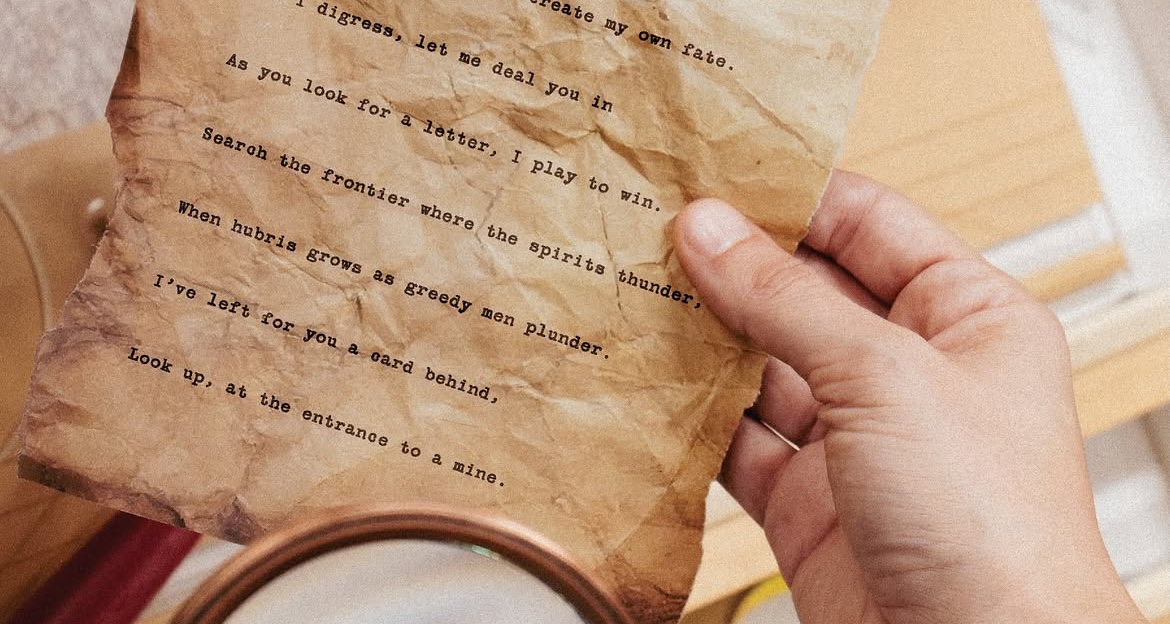 create my own fate.
I digress, let me deal you in
As you look for a letter, I play to win.
Search the frontier where the spirits thunder,
When hubris grows as greedy men plunder.
I've left for you a card behind,
Look up, at the entrance to a mine.